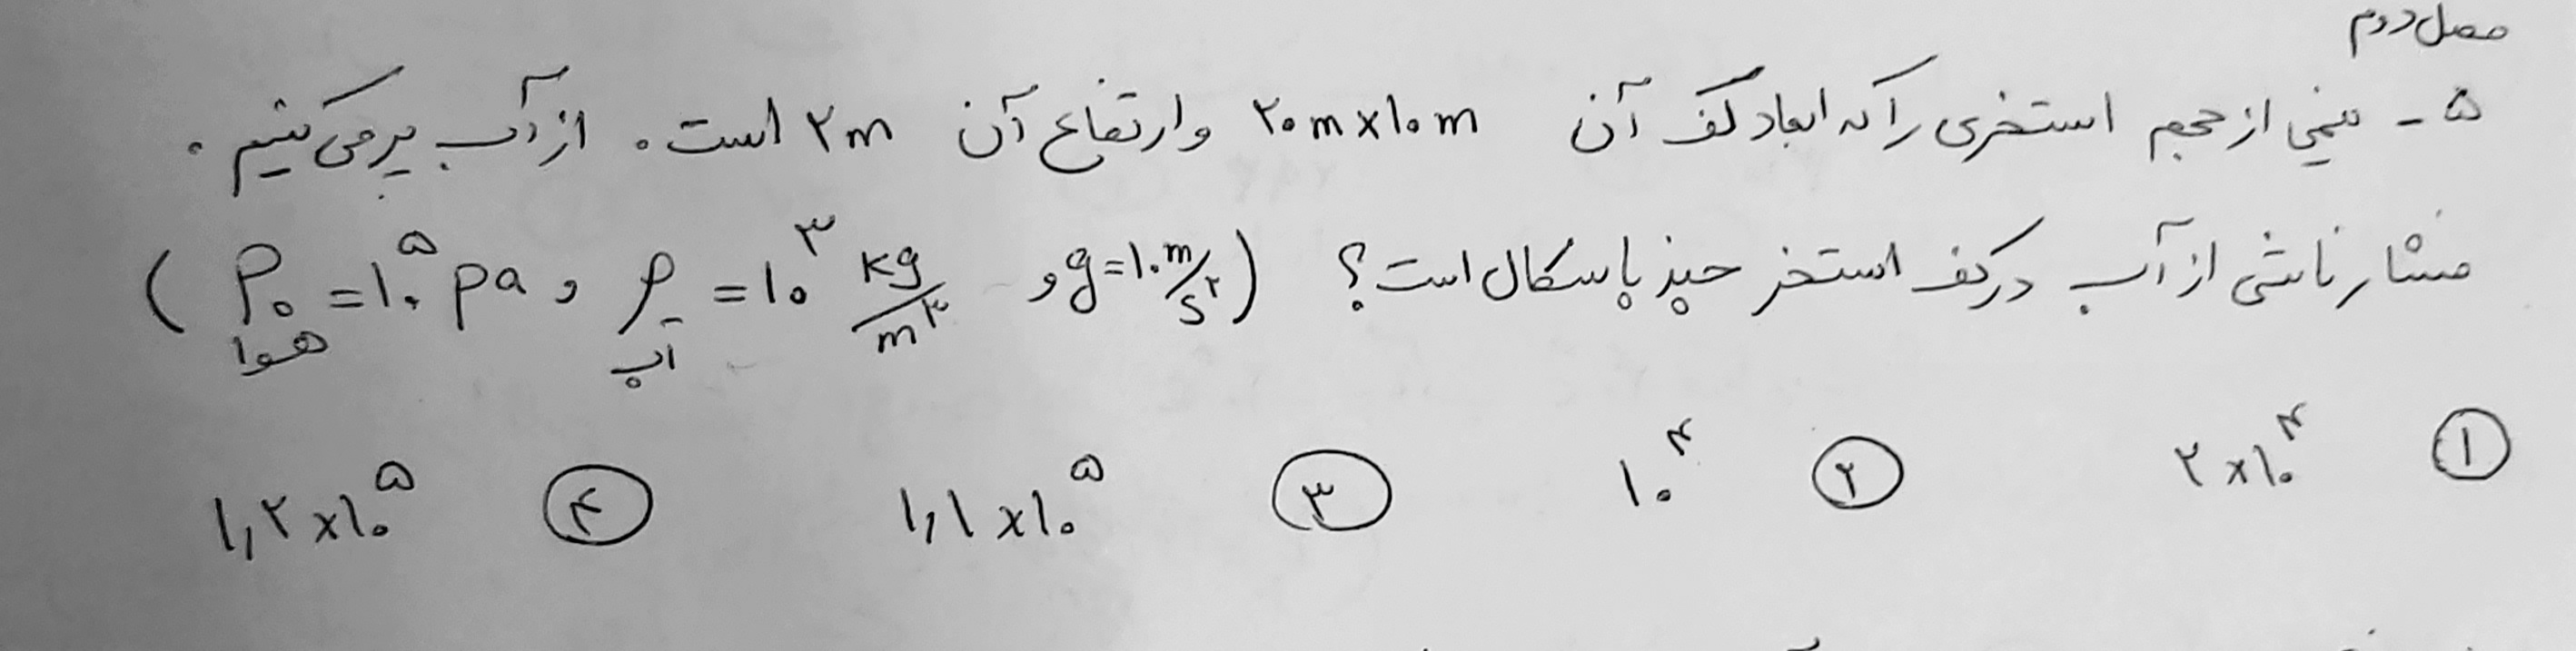 فصل دوم
۵- نیمی از حجم استخری را که ابعاد کف آن ۲۰m×۱۰m و ارتفاع آن ۲m است. از آب پر می‌کنیم.
فشار ناشی از آب در کف استخر چند پاسکال است؟ (g=۱۰ m/s² و ρ آب =۱۰³ kg/m³ و P₀ هوا =۱۰⁵ pa)
① ۲×۱۰⁴ ② ۱۰⁴ ③ ۱,۱×۱۰⁵ ④ ۱,۲×۱۰⁵